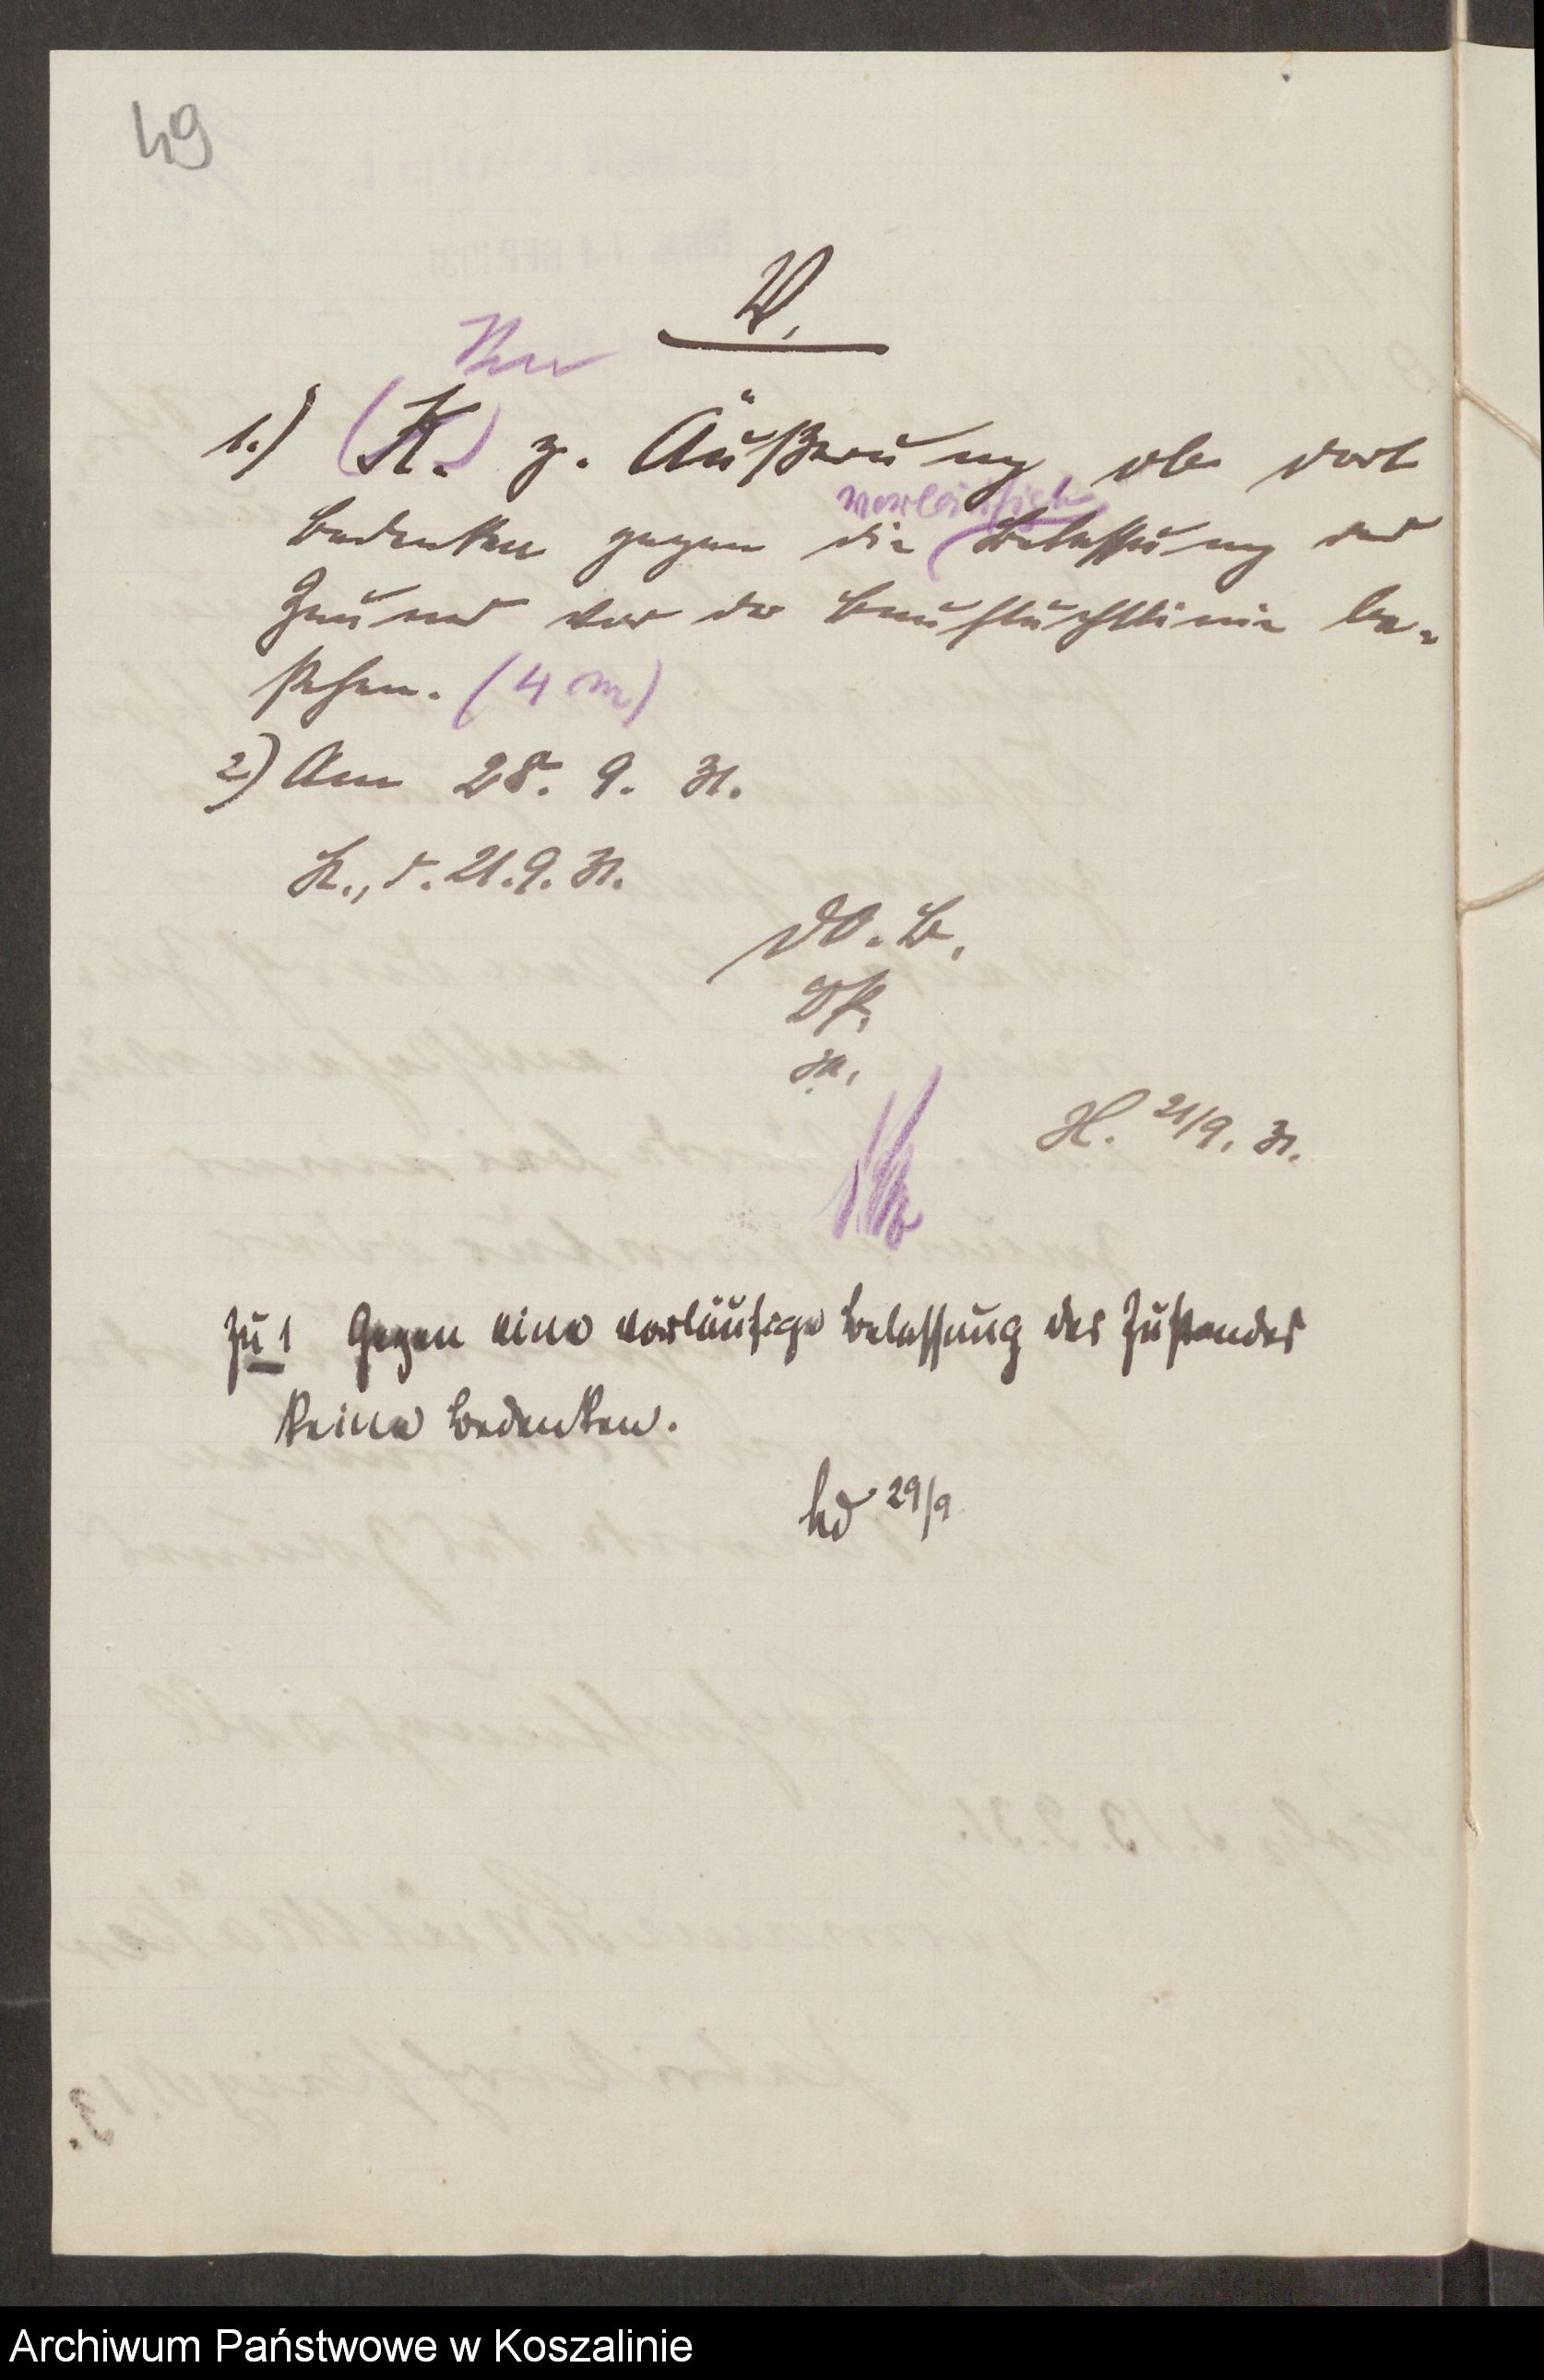 49
V.
1.) (K.) z. Äußerung, ob dort
vorläufige
Bedenken gegen die Belassung des
Zauns vor der Baufluchtlinie be-
stehen. (4 m)
2.) Am 28. 9. 31.
St., d. 21.9.31.
D. O. B.
H. 21/9. 31.
Zu 1 Gegen eine vorläufige Belassung des Zustandes
keine Bedenken.
29/9
Archiwum Państwowe w Koszalinie